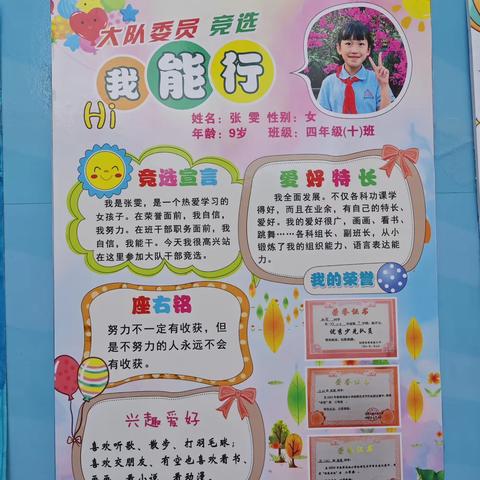 大队委员 竞选
我能行
Hi
姓名：张 雯 性别：女
年龄：9岁 班级：四年级(十)班
竞选宣言
我是张雯，是一个热爱学习的
女孩子。在荣誉面前，我自信，
我努力。在班干部职务面前，我
自信，我能干。今天我很高兴站
在这里参加大队干部竞选。
爱好特长
我全面发展。不仅各科功课学
得好，而且在业余，有自己的特长、
爱好。我的爱好很广，画画、看书、
跳舞……各科组长、副班长，从小
锻炼了我的组织能力、语言表达能
力。
座右铭
努力不一定有收获，但
是不努力的人永远不会
有收获。
我的荣誉
荣誉证书
优秀少先队员
荣誉证书
荣誉证书
兴趣爱好
喜欢听歌、散步、打羽毛球；
喜欢交朋友、有空也喜欢看书、
画画、看小说、看动漫。